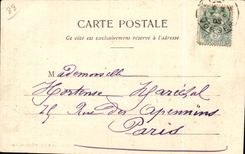 33
CARTE POSTALE
Ce côté est exclusivement réservé à l'adresse
Mademoiselle
Hortense Maréchal
25 Rue des Apennins
Paris